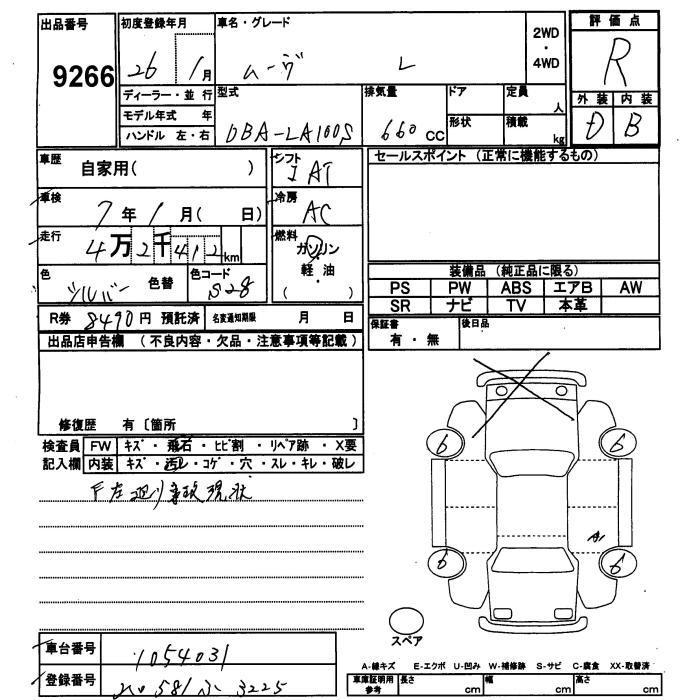 出品番号 初度登録年月 車名・グレード 評価点
9266 26 1月 ムーヴ L 2WD・4WD R
ディーラー・並行 型式 排気量 ドア 定員 人 外装 内装
モデル年式 年 形状 積載 kg
ハンドル 左・右 DBA-LA100S 660 CC D B
車歴 自家用( ) シフト I AT セールスポイント (正常に機能するもの)
車検 7年1月( 日) 冷房 AC
走行 4万2千412km 燃料 ガソリン
軽・油
( )
色 シルバー 色替 色コード S28 装備品 (純正品に限る)
PS PW ABS エアB AW
SR ナビ TV 本革
R券 8490円 預託済 名変通知期限 月 日 保証書 有・無 後日品
出品店申告欄 (不良内容・欠品・注意事項等記載)
修復歴 有〔箇所 〕
検査員 FW キズ・飛石・ヒビ割・リペア跡・X要
記入欄 内装 キズ・汚れ・コゲ・穴・スレ・キレ・破レ
F左廻り事故現状
6 6
A
6 6
スペア
車台番号 1054031
A-線キズ E-エクボ U-凹み W-補修跡 S-サビ C-腐食 XX-取替済
登録番号 581 3225
車庫証明用参考 長さ cm 幅 cm 高さ cm